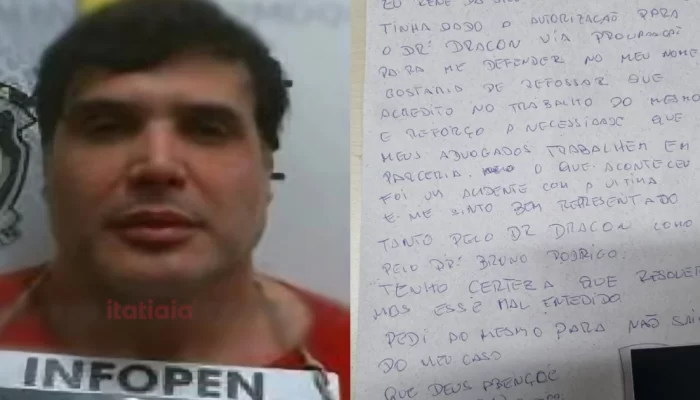 itatiaia
INFOPEN
EU RENE
TINHA DADO A AUTORIZAÇÃO PARA
O DR: DRACON VIA PROCURAÇÃO
PARA ME DEFENDER NO MEU NOME
GOSTARIA DE REFOSSAR QUE
ACREDITO NO TRABALHO DO MESMO
E REFORÇO A NECESSIDADE QUE
MEUS ADVOGADOS TRABALHEM EM
PARCERIA. O QUE ACONTECEU
FOI UM ACIDENTE COM A VITIMA
E ME SINTO BEM REPRESENTADO
TANTO PELO DR DRACON COMO
PELO DR: BRUNO RODRIGO.
TENHO CERTEZA QUE RESOLVE
MAS ESSE MAL ENTEDIDO
PEDI AO MESMO PARA NÃO SAI
DO MEU CASO
QUE DEUS ABENÇOE